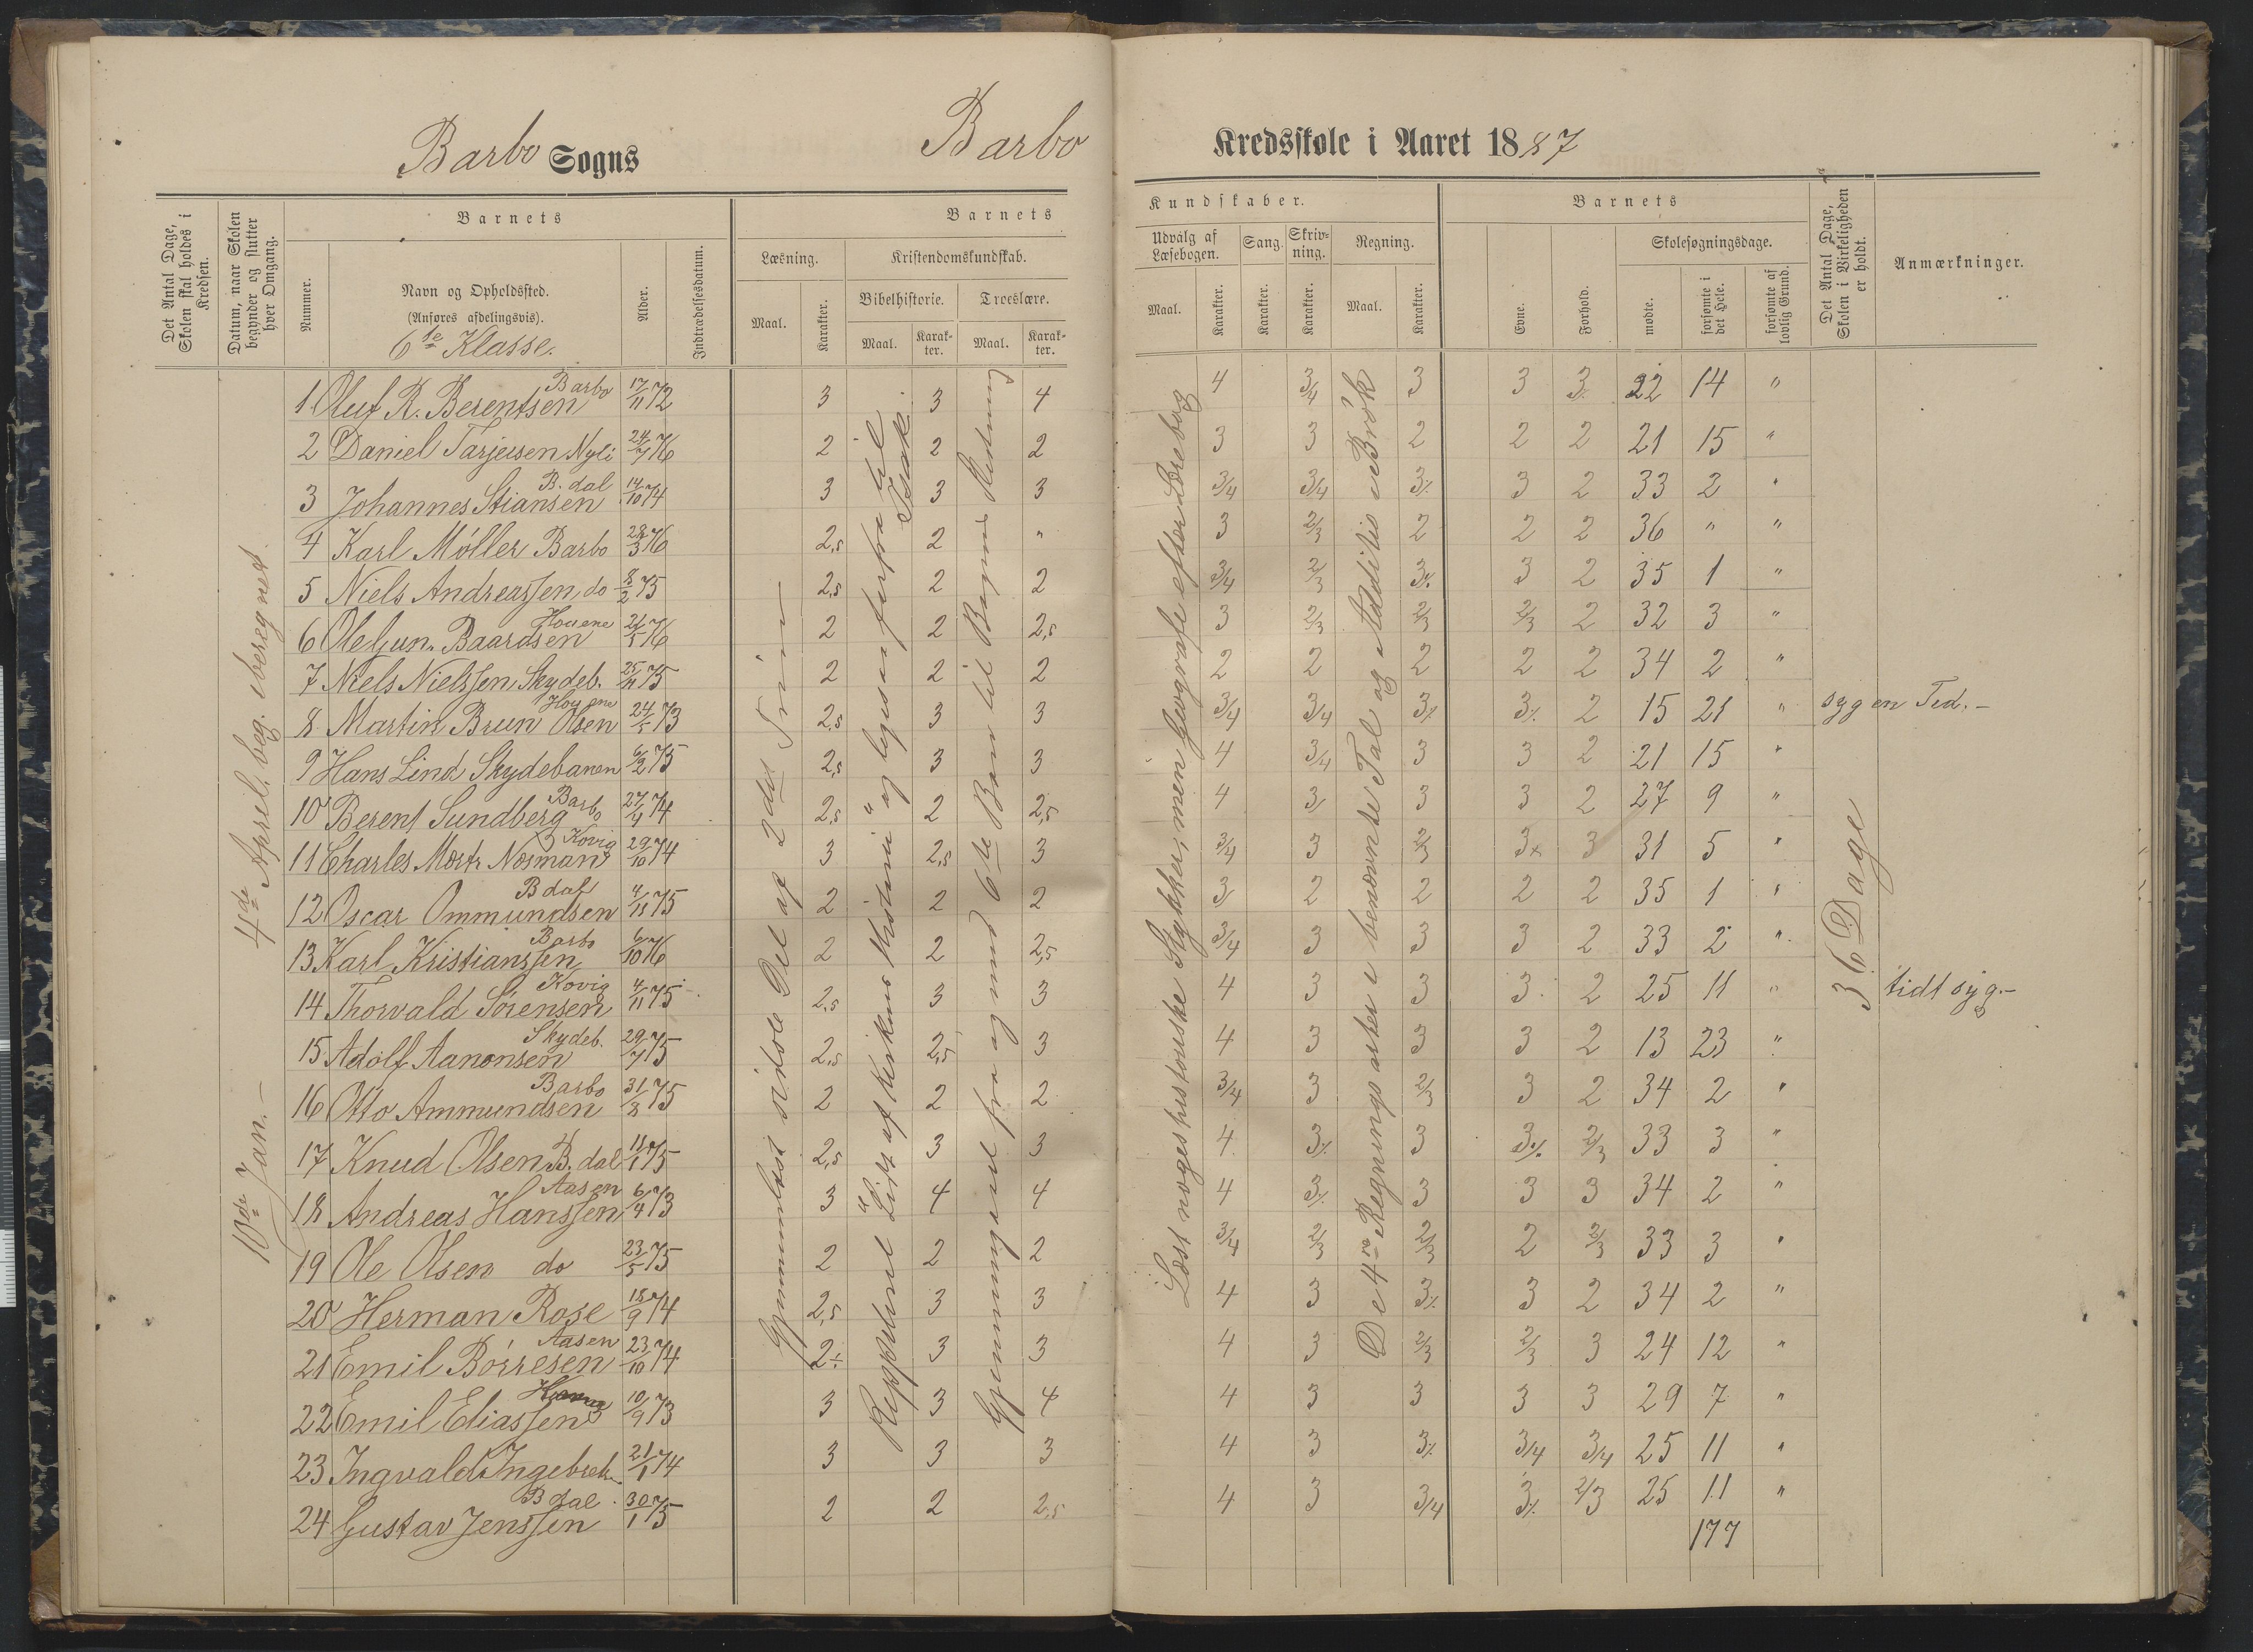 Barbo Sogns
Barbo
Kredsskole i Aaret 1887
Det Antal Dage, Skolen skal holdes i Kredsen.
Datum, naar Skolen begynder og slutter hver Omgang.
Barnets
Nummer.
Navn og Opholdssted.
(Anføres afdelingsvis).
6te Klasse.
Alder.
Indtrædelsesdatum.
Barnets
Læsning.
Maal.
Karakter.
Kristendomskundskab.
Bibelhistorie.
Maal.
Karakter.
Troeslære.
Maal.
Karakter.
Kundskaber.
Udvalg af Læsebogen.
Maal.
Karakter.
Sang.
Karakter.
Skrivning.
Karakter.
Regning.
Maal.
Karakter.
Barnets
Evne.
Forhold.
Skolesøgningsdage.
mødte.
forsømte i det Hele.
forsømte af lovlig Grund.
Det Antal Dage, Skolen i Virkeligheden er holdt.
Anmærkninger.
10de Jan. – 4de April. beg. iberegnet.
Gjennemlæst sidste Del af 2det Trin
Reppeteret Lidt af Kirkens Historie og legesaa forfra til Isak.
Gjennemgaaet fra og med 6te Bøn til Bogens Slutning
Læst noget historiske Stykker, men Geografi efter Lærebog
De 4re Regningsarter i benævnte Tal og Additis i Brøk
36 Dage
1 Oluf R. Berentsen Barbo 17/11 72 3 3 4 4 3/4 3 3 3 22 14 "
2 Daniel Tarjeisen Nyli 24/7 76 2 2 2 3 3 2 2 2 21 15 "
3 Johannes Stiansen B. dal 14/10 74 3 3 3 3/4 3/4 3⁒ 3 2 33 2 "
4 Karl Møller Barbo 28/3 76 2,5 2 " 3 2/3 2 2 2 36 " "
5 Niels Andreassen do 8/2 75 2,5 2 2 3/4 2/3 3⁒ 3 2 35 1 "
6 Ole Gun. Baardsen Houene 21/5 76 2 2 2,5 3 2/3 2/3 2/3 2 32 3 "
7 Niels Nielssen Skydeb. 25/11 75 2 2 2 2 2 2 2 2 34 2 "
8 Martin Brun Olsen Houene 24/5 73 2,5 3 3 3/4 3/4 3⁒ 3⁒ 2 15 21 " syg en Tid. –
9 Hans Lind Skydebanen 6/2 75 2,5 3 3 4 3/4 3 3 2 21 15 "
10 Berent Sundberg Barbo 27/4 74 2,5 2 2,5 4 3 3 3 2 27 9 "
11 Charles Mortr Normann Kovig 29/10 74 3 2,5 3 3/4 3 2/3 3 3 31 5 "
12 Oscar Ommundsen B dal 4/11 75 2 2 2 3 2 2 2 2 35 1 "
13 Karl Kristianssen Barbo 6/10 76 2 2 2,5 3/4 3 3 3 2 33 2 "
14 Thorvald Sørensen Kovig 4/11 75 2,5 3 3 4 3 3 3 2 25 11 " tidt syg. –
15 Adolf Aanonsen Skydeb. 29/7 75 2,5 2,5 3 4 3 3 3 2 13 23 "
16 Otto Ammundsen Barbo 31/3 75 2 2 2 3/4 3 2/3 3 2 34 2 "
17 Knud Olsen B. dal 11/1 75 2,5 3 3 4 3⁒ 3 3⁒ 2/3 33 3 "
18 Andreas Hanssen Aasen 6/4 73 3 4 4 4 3⁒ 3 3 3 34 2 "
19 Ole Olsen do 23/5 75 2 2 2 3/4 2/3 2/3 2 2/3 33 3 "
20 Herman Rose 18/9 74 2,5 3 3 4 3 3⁒ 3 2 34 2 "
21 Emil Børresen Aasen 23/10 74 2÷ 3 3 4 3 2/3 2/3 3 24 12 "
22 Emil Eliassen 10/9 73 3 3 4 4 3 3 3 3 29 7 "
23 Ingvald Ingebretn. 21/1 74 3 3 3 4 3 3⁒ 3/4 3/4 25 11 "
24 Gustav Jenssen B dal 30/1 75 2 2 2,5 4 3 3/4 3⁒ 2/3 25 11 "
177